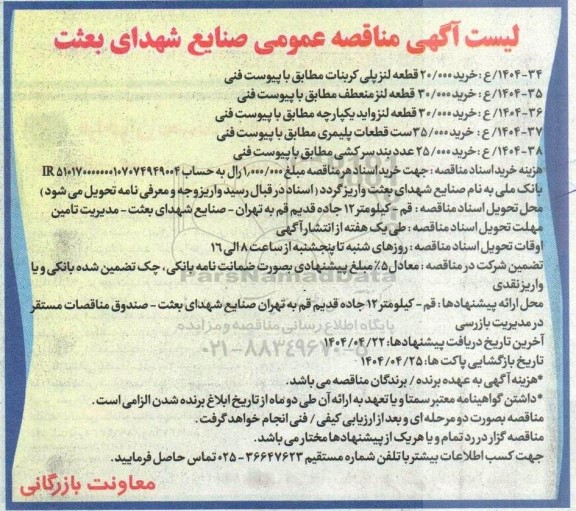 لیست آگهی مناقصه عمومی صنایع شهدای بعثت
۱۴۰۴-۳۴/ع : خرید ۲۰/۰۰۰ قطعه لنز پلی کربنات مطابق با پیوست فنی
۱۴۰۴-۳۵/ع : خرید ۳۰/۰۰۰ قطعه لنز منعطف مطابق با پیوست فنی
۱۴۰۴-۳۶/ع : خرید ۳۰/۰۰۰ قطعه لنز واید یکپارچه مطابق با پیوست فنی
۱۴۰۴-۳۷/ع : خرید ۳۵/۰۰۰ ست قطعات پلیمری مطابق با پیوست فنی
۱۴۰۴-۳۸/ع : خرید ۲۵/۰۰۰ عدد بند سر کشی مطابق با پیوست فنی
*هزینه خرید اسناد مناقصه : جهت خرید اسناد هر مناقصه مبلغ ۱,۰۰۰/۰۰۰ ریال به حساب IR ۵۱۰۱۷۰۰۰۰۰۰۰۱۰۷۰۷۴۹۴۹۰۰۴
بانک ملی به نام صنایع شهدای بعثت واریز گردد (اسناد در قبال رسید واریز وجه و معرفی نامه تحویل می شود)
محل تحویل اسناد مناقصه : قم - کیلومتر ۱۲ جاده قدیم قم به تهران - صنایع شهدای بعثت - مدیریت تامین
مهلت تحویل اسناد مناقصه : طی یک هفته از انتشار آگهی
اوقات تحویل اسناد مناقصه : روزهای شنبه تا پنجشنبه از ساعت ۸ الی ۱۶
تضمین شرکت در مناقصه : معادل ۵٪ مبلغ پیشنهادی بصورت ضمانت نامه بانکی ، چک تضمین شده بانکی و یا
واریز نقدی
ParsNamadData
محل ارائه پیشنهادها : قم - کیلومتر ۱۲ جاده قدیم قم به تهران صنایع شهدای بعثت - صندوق مناقصات مستقر
در مدیریت بازرسی
پایگاه اطلاع رسانی مناقصه و مزایده
آخرین تاریخ دریافت پیشنهادها: ۱۴۰۴/۰۴/۲۲
۰۲۱-۸۸۳۴۹۶۷۰-۵
تاریخ بازگشایی پاکت ها: ۱۴۰۴/۰۴/۲۵
*هزینه آگهی به عهده برنده / برندگان مناقصه می باشد.
*داشتن گواهینامه معتبر سمتا و یا تعهد به ارائه آن طی دو ماه از تاریخ ابلاغ برنده شدن الزامی است.
مناقصه بصورت دو مرحله ای و بعد از ارزیابی کیفی / فنی انجام خواهد گرفت.
مناقصه گزار در رد تمام و یا هر یک از پیشنهادها مختار می باشد.
جهت کسب اطلاعات بیشتر با تلفن شماره مستقیم ۳۶۶۴۷۶۲۳ - ۰۲۵ تماس حاصل فرمایید.
معاونت بازرگانی